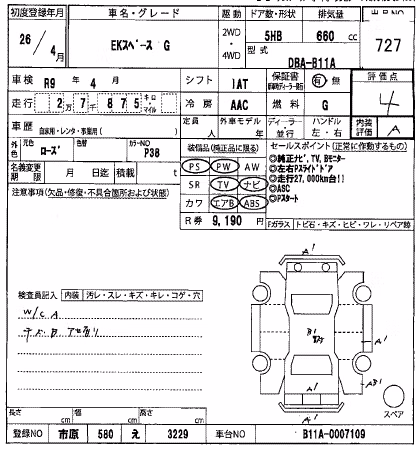 初度登録年月 車名・グレード 駆動 ドア数・形状 排気量
26/4月 EKスペース G 2WD・4WD 5HB 660 cc 727
型式 DBA-B11A
車検 R9年4月 シフト IAT 保証書 有 無 評価点
走行 2万7千875 キロ・マイル 冷房 AAC 燃料 G 4
車歴 自家用・レンタ・事業用( ) 定員 人 外車モデル 年 ディーラー・並行 ハンドル 左・右 内装評価 A
外色 元色 ローズ 色替 カラーNO P38
名義変更期限 月 日迄 積載 t
注意事項(欠品・修復・不具合箇所および状態)
装備品(純正品に限る)
PS PW AW
SR TV ナビ
カワ エアB ABS
R券 9,190 円
セールスポイント(正常に作動するもの)
◎純正ナビ,TV,Bモニター
◎左右Pスライドドア
◎走行27,000km台!!
◎ASC
◎Pスタート
Fガラス トビ石・キズ・ヒビ・ワレ・リペア跡
検査員記入 内装 汚レ・スレ・キズ・キレ・コゲ・穴
W/C A
A'
B'
A'
A'
AB'
A'
スペア
長さ cm 幅 cm 高さ cm
登録NO 市原 580 え 3229 車台NO B11A-0007109